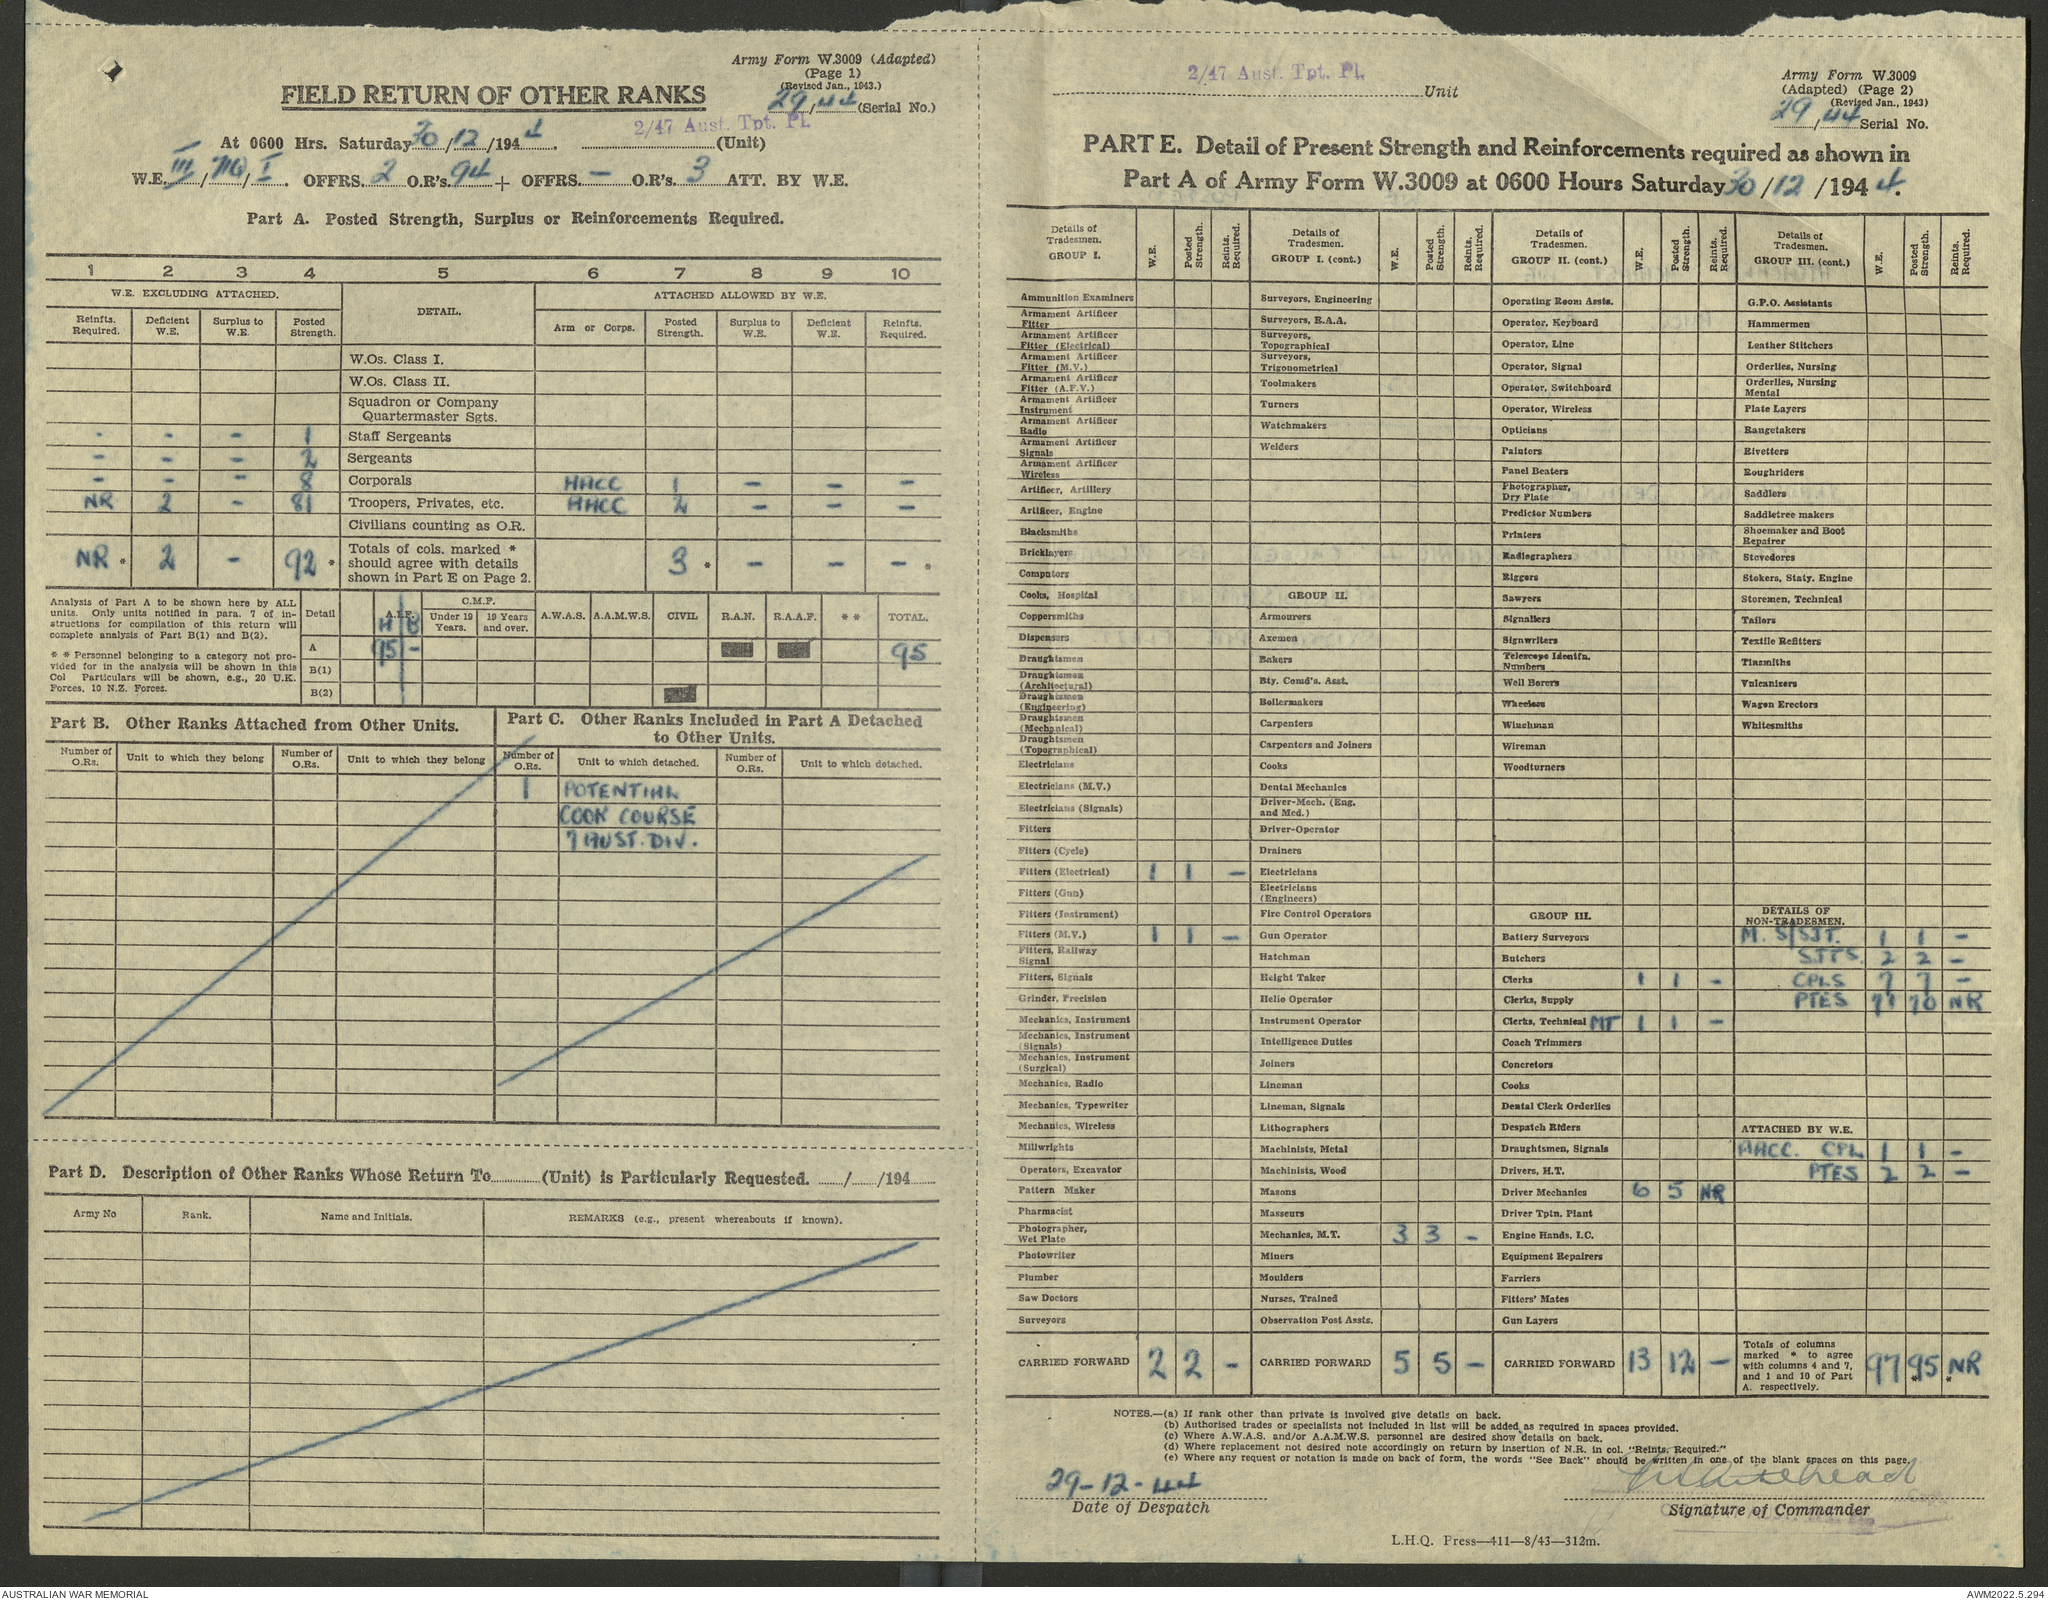 Army Form W.3009 (Adapted)
(Page 1)
(Revised Jan., 1943.)
29/44 (Serial No.)
FIELD RETURN OF OTHER RANKS
2/47 Aust. Tpt. Pl.
At 0600 Hrs. Saturday 30/12/1944. (Unit)
W.E. III/ /I. OFFRS. 2 O.R's. 94 + OFFRS. – O.R's. 3 ATT. BY W.E.
Part A. Posted Strength, Surplus or Reinforcements Required.
1 2 3 4 5 6 7 8 9 10
W.E. EXCLUDING ATTACHED. DETAIL. ATTACHED ALLOWED BY W.E.
Reinfts. Required. Deficient W.E. Surplus to W.E. Posted Strength. Arm or Corps. Posted Strength. Surplus to W.E. Deficient W.E. Reinfts. Required.
W.Os. Class I.
W.Os. Class II.
Squadron or Company
Quartermaster Sgts.
- - - 1 Staff Sergeants
- - - 2 Sergeants
- - - 8 Corporals AACC 1 - - -
NR 2 - 81 Troopers, Privates, etc. AACC 2 - - -
Civilians counting as O.R.
NR * 2 - 92 * Totals of cols. marked * should agree with details shown in Part E on Page 2. 3 * - - - *
Analysis of Part A to be shown here by ALL
units. Only units notified in para. 7 of in-
structions for compilation of this return will
complete analysis of Part B(1) and B(2).
* * Personnel belonging to a category not pro-
vided for in the analysis will be shown in this
Col Particulars will be shown, e.g., 20 U.K.
Forces, 10 N.Z. Forces.
Detail A.I.F. C.M.F. A.W.A.S. A.A.M.W.S. CIVIL R.A.N. R.A.A.F. * * TOTAL.
H B Under 19 Years. 19 Years and over.
A 95 - 95
B(1)
B(2)
Part B. Other Ranks Attached from Other Units.
Number of O.Rs. Unit to which they belong Number of O.Rs. Unit to which they belong
Part C. Other Ranks Included in Part A Detached
to Other Units.
Number of O.Rs. Unit to which detached. Number of O.Rs. Unit to which detached.
1 POTENTIAL
COOK COURSE
7 AUST. DIV.
Part D. Description of Other Ranks Whose Return To (Unit) is Particularly Requested. / /194
Army No Rank. Name and Initials. REMARKS (e.g., present whereabouts if known).
2/47 Aust. Tpt. Pl.
Unit
Army Form W.3009
(Adapted) (Page 2)
(Revised Jan., 1943)
29/44 Serial No.
PART E. Detail of Present Strength and Reinforcements required as shown in
Part A of Army Form W.3009 at 0600 Hours Saturday 30/12/1944.
Details of Tradesmen. GROUP I. W.E. Posted Strength. Reints. Required.
Ammunition Examiners
Armament Artificer Fitter
Armament Artificer Fitter (Electrical)
Armament Artificer Fitter (M.V.)
Armament Artificer Fitter (A.F.V.)
Armament Artificer Instrument
Armament Artificer Radio
Armament Artificer Signals
Armament Artificer Wireless
Artificer, Artillery
Artificer, Engine
Blacksmiths
Bricklayers
Computors
Cooks, Hospital
Coppersmiths
Dispensers
Draughtsmen
Draughtsmen (Architectural)
Draughtsmen (Engineering)
Draughtsmen (Mechanical)
Draughtsmen (Topographical)
Electricians
Electricians (M.V.)
Electricians (Signals)
Fitters
Fitters (Cycle)
Fitters (Electrical) 1 1 -
Fitters (Gun)
Fitters (Instrument)
Fitters (M.V.) 1 1 -
Fitters, Railway Signal
Fitters, Signals
Grinder, Precision
Mechanics, Instrument
Mechanics, Instrument (Signals)
Mechanics, Instrument (Surgical)
Mechanics, Radio
Mechanics, Typewriter
Mechanics, Wireless
Millwrights
Operators, Excavator
Pattern Maker
Pharmacist
Photographer, Wet Plate
Photowriter
Plumber
Saw Doctors
Surveyors
CARRIED FORWARD 2 2 -
Details of Tradesmen. GROUP I. (cont.) W.E. Posted Strength. Reints. Required.
Surveyors, Engineering
Surveyors, R.A.A.
Surveyors, Topographical
Surveyors, Trigonometrical
Toolmakers
Turners
Watchmakers
Welders
GROUP II.
Armourers
Axemen
Bakers
Bty. Comd's. Asst.
Boilermakers
Carpenters
Carpenters and Joiners
Cooks
Dental Mechanics
Driver-Mech. (Eng. and Med.)
Driver-Operator
Drainers
Electricians
Electricians (Engineers)
Fire Control Operators
Gun Operator
Hatchman
Height Taker
Helio Operator
Instrument Operator
Intelligence Duties
Joiners
Lineman
Lineman, Signals
Lithographers
Machinists, Metal
Machinists, Wood
Masons
Masseurs
Mechanics, M.T. 3 3 -
Miners
Moulders
Nurses, Trained
Observation Post Assts.
CARRIED FORWARD 5 5 -
Details of Tradesmen. GROUP II. (cont.) W.E. Posted Strength. Reints. Required.
Operating Room Assts.
Operator, Keyboard
Operator, Line
Operator, Signal
Operator, Switchboard
Operator, Wireless
Opticians
Painters
Panel Beaters
Photographer, Dry Plate
Predictor Numbers
Printers
Radiographers
Riggers
Sawyers
Signallers
Signwriters
Telescope Identfn. Numbers
Well Borers
Wheelers
Winchman
Wireman
Woodturners
GROUP III.
Battery Surveyors
Butchers
Clerks 1 1 -
Clerks, Supply
Clerks, Technical MT 1 1 -
Coach Trimmers
Concretors
Cooks
Dental Clerk Orderlies
Despatch Riders
Draughtsmen, Signals
Drivers, H.T.
Driver Mechanics 6 5 NR
Driver Tptn. Plant
Engine Hands, I.C.
Equipment Repairers
Farriers
Fitters' Mates
Gun Layers
CARRIED FORWARD 13 12 -
Details of Tradesmen. GROUP III. (cont.) W.E. Posted Strength. Reints. Required.
G.P.O. Assistants
Hammermen
Leather Stitchers
Orderlies, Nursing
Orderlies, Nursing Mental
Plate Layers
Rangetakers
Rivetters
Roughriders
Saddlers
Saddletree makers
Shoemaker and Boot Repairer
Stevedores
Stokers, Staty. Engine
Storemen, Technical
Tailors
Textile Refitters
Tinsmiths
Vulcanizers
Wagon Erectors
Whitesmiths
DETAILS OF NON-TRADESMEN.
M. S/SJT. 1 1 -
SJTS. 2 2 -
CPLS 7 7 -
PTES 71 70 NR
ATTACHED BY W.E.
AACC. CPL 1 1 -
PTES 2 2 -
Totals of columns marked * to agree with columns 4 and 7, and 1 and 10 of Part A. respectively. 97 95 * * NR
NOTES.—(a) If rank other than private is involved give details on back.
(b) Authorised trades or specialists not included in list will be added as required in spaces provided.
(c) Where A.W.A.S. and/or A.A.M.W.S. personnel are desired show details on back.
(d) Where replacement not desired note accordingly on return by insertion of N.R. in col. "Reints. Required."
(e) Where any request or notation is made on back of form, the words "See Back" should be written in one of the blank spaces on this page.
29-12-44
Date of Despatch
Whitehead
Signature of Commander
L.H.Q. Press—411—8/43—312m.
AUSTRALIAN WAR MEMORIAL
AWM2022.5.294